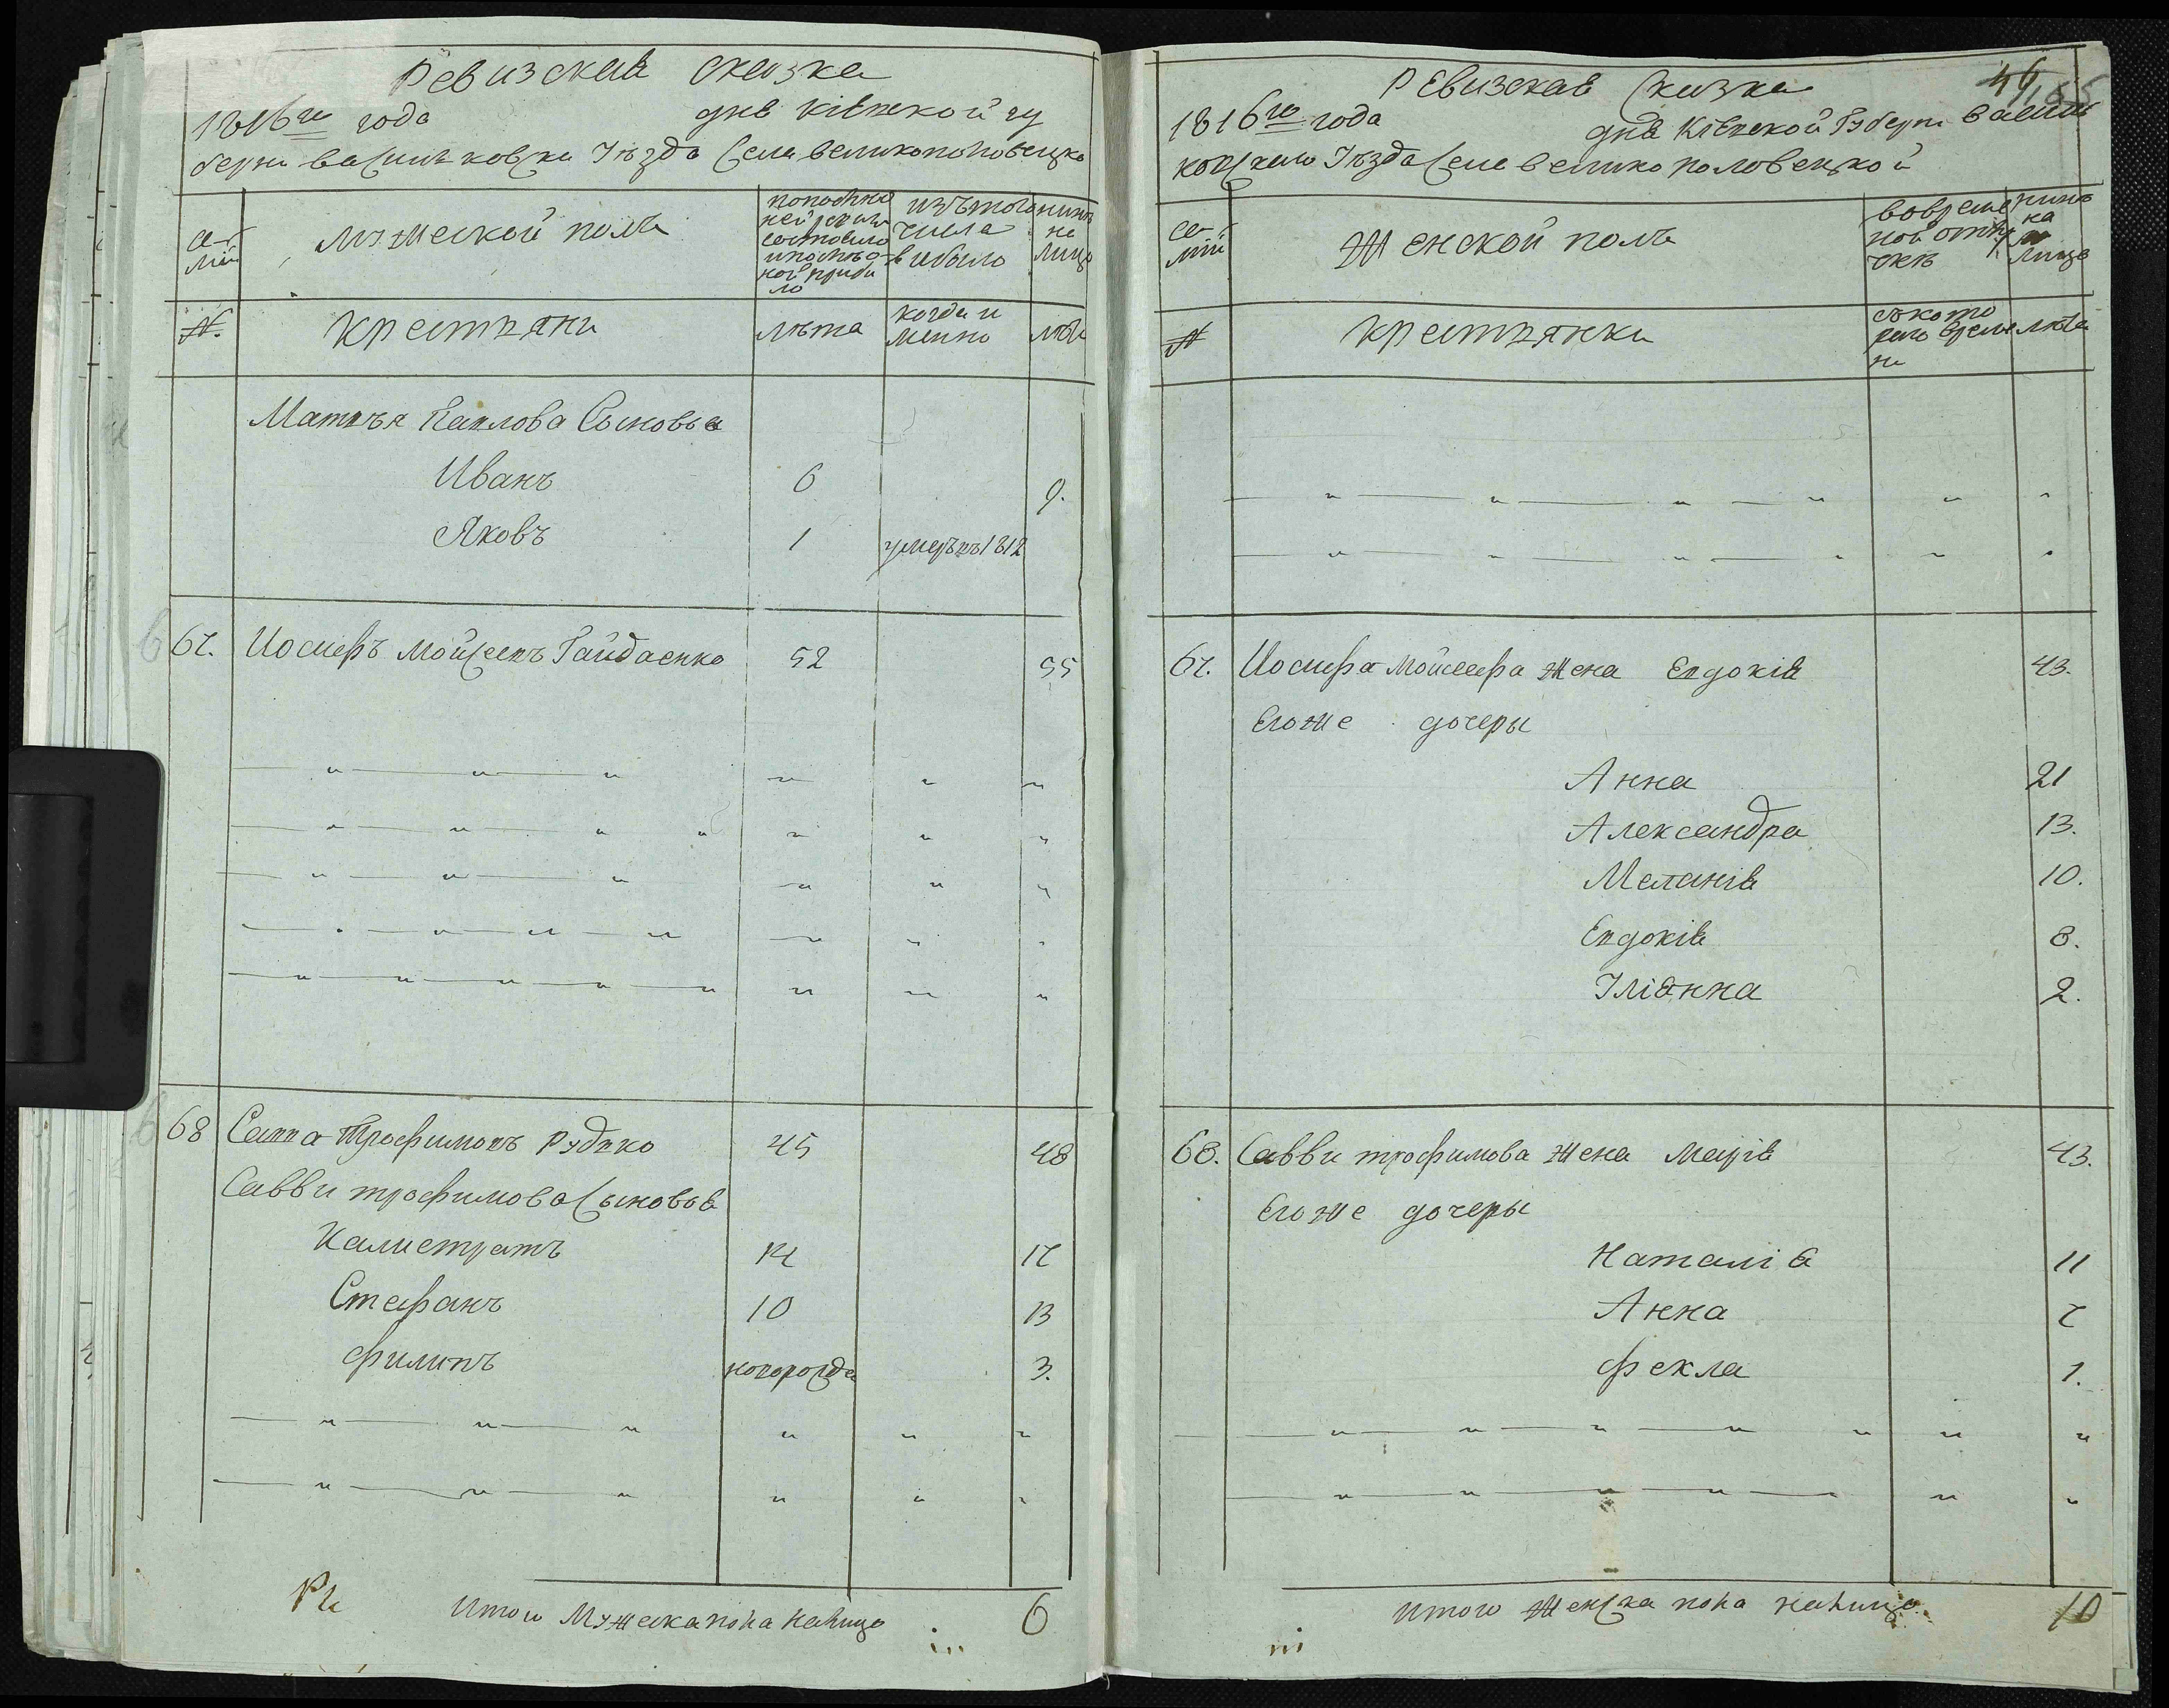 Ревизская сказка
1816го года дня Кіевской гу
берни васильковски Уѣзда Села великополовецко
се-
мьи
мужескои полъ
попослѣд
ней ревизи
состояло
ипослѣ о-
ноѣ прибы
ло
изътого
числа
выбыло
нынѣ
на
лицо
№.
крестьяни
лѣта
когда и
менно
лѣта
Матвѣя Павлова Сыновья
Иванъ 6 9.
Яковъ 1 умеръ въ 1812
67. Иосифъ Мойсеевъ Гайдаенко 52 55
68 Савва Трофимовъ Рудько 45 48
Савви трофимова Сыновья
Калистратъ 14 17
Стефанъ 10 13
Филипъ новорожде 3.
Итого Мужеска пола налицо 6
Ревизская Сказка 46
1816го года дня Кіевской Губерни василь
ковскаго Уѣзда Села великополовецкой
се-
мьи
Женской полъ
вовреме
ной отлу
чкѣ
нынѣ
на
лицо
№
крестьянки
съкото
раго време
ни
лѣта
67. Иосифа Мойсеефа жена Евдокія 43.
Егоже дочеры
Анна 21
Александра 13.
Меланія 10.
Евдокія 8.
Уліянна 2.
68. Савви трофимова жена Марія 43.
Егоже дочеры
Наталія 11
Анна 7
Фекла 1.
Итого Женска пола налицо 10